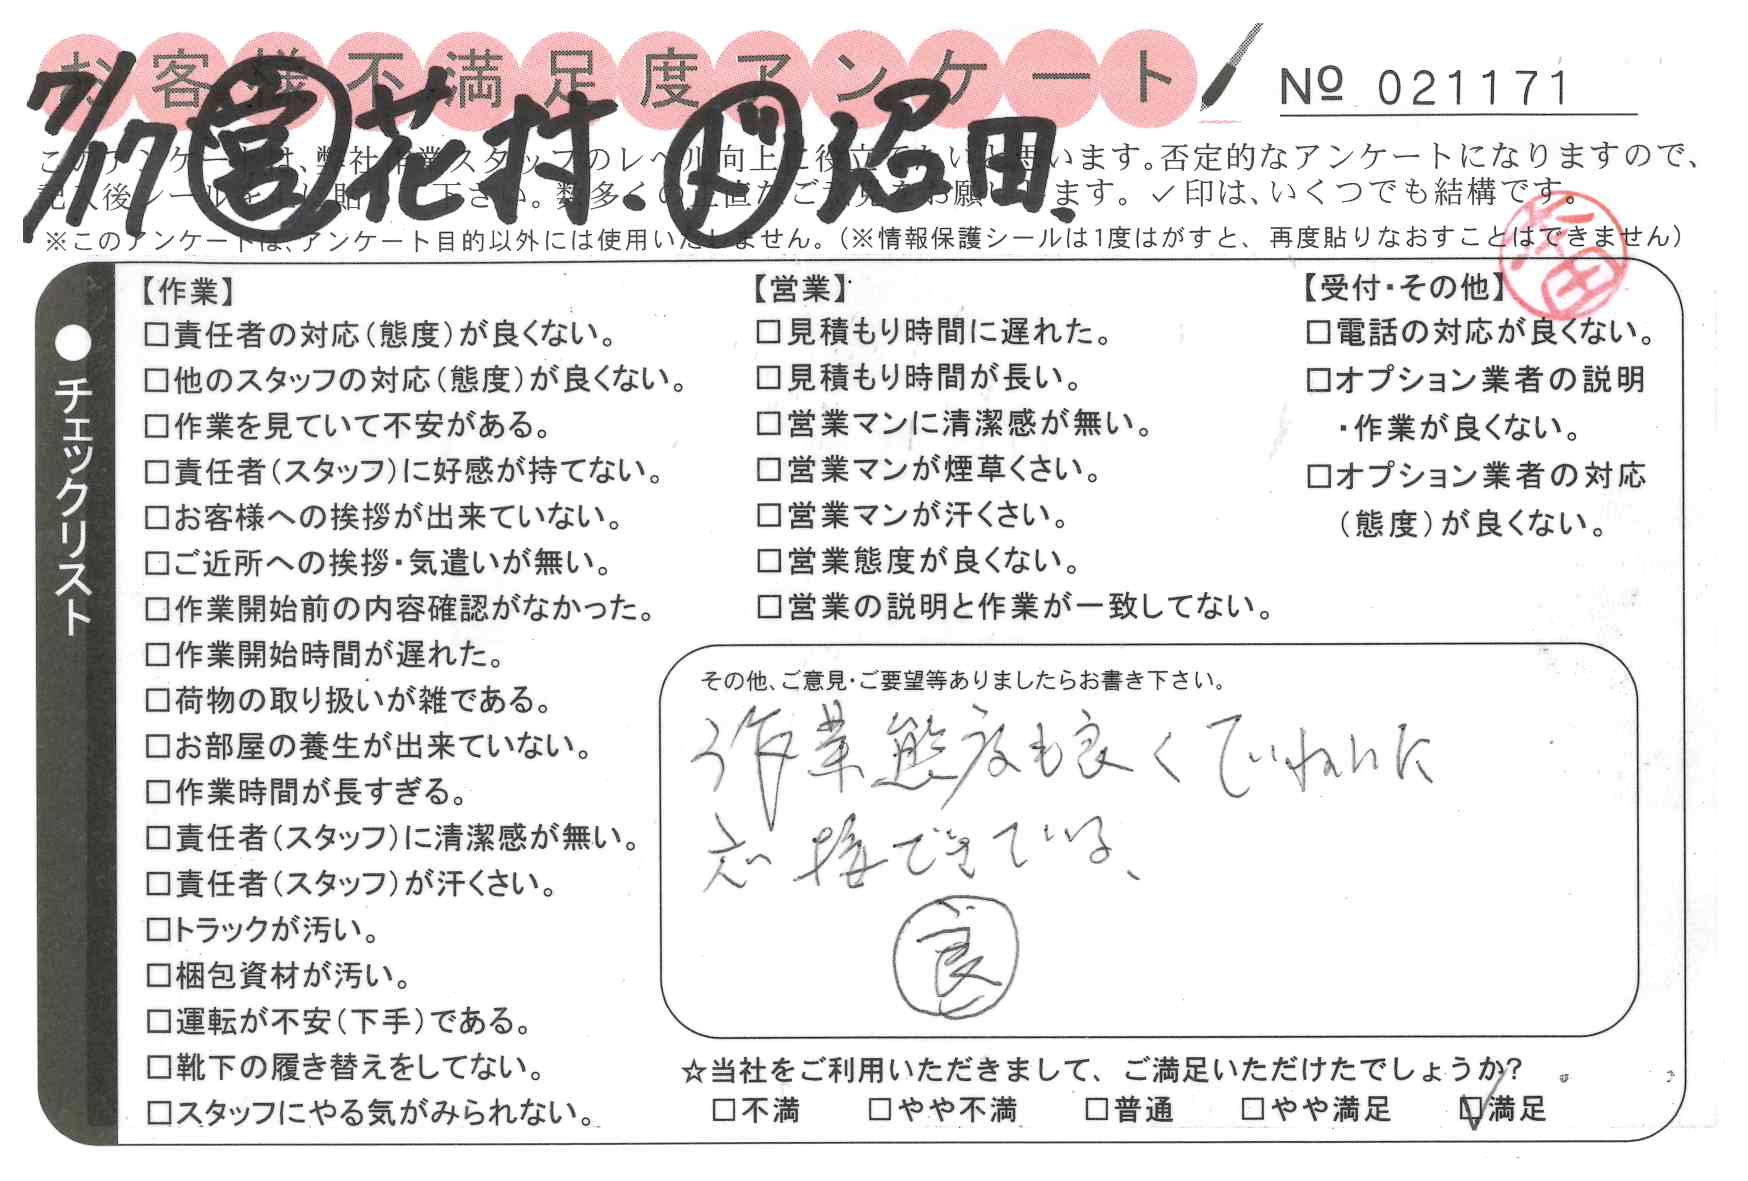 お客様不満足度アンケート
№ 021171
7/17 営 花村、ド 沼田、
このアンケートは、弊社作業スタッフのレベル向上に役立てたいと思います。否定的なアンケートになりますので、
記入後シールを 貼 下さい。数多くの正直なご意見をお願いします。✓印は、いくつでも結構です。
※このアンケートは、アンケート目的以外には使用いたしません。(※情報保護シールは1度はがすと、再度貼りなおすことはできません)
●チェックリスト
【作業】
□責任者の対応(態度)が良くない。
□他のスタッフの対応(態度)が良くない。
□作業を見ていて不安がある。
□責任者(スタッフ)に好感が持てない。
□お客様への挨拶が出来ていない。
□ご近所への挨拶・気遣いが無い。
□作業開始前の内容確認がなかった。
□作業開始時間が遅れた。
□荷物の取り扱いが雑である。
□お部屋の養生が出来ていない。
□作業時間が長すぎる。
□責任者(スタッフ)に清潔感が無い。
□責任者(スタッフ)が汗くさい。
□トラックが汚い。
□梱包資材が汚い。
□運転が不安(下手)である。
□靴下の履き替えをしてない。
□スタッフにやる気がみられない。
【営業】
□見積もり時間に遅れた。
□見積もり時間が長い。
□営業マンに清潔感が無い。
□営業マンが煙草くさい。
□営業マンが汗くさい。
□営業態度が良くない。
□営業の説明と作業が一致してない。
【受付・その他】
□電話の対応が良くない。
□オプション業者の説明
・作業が良くない。
□オプション業者の対応
(態度)が良くない。
その他、ご意見・ご要望等ありましたらお書き下さい。
作業態度も良くていねいに
応接できている、
良
☆当社をご利用いただきまして、ご満足いただけたでしょうか?
□不満 □やや不満 □普通 □やや満足 ☑満足